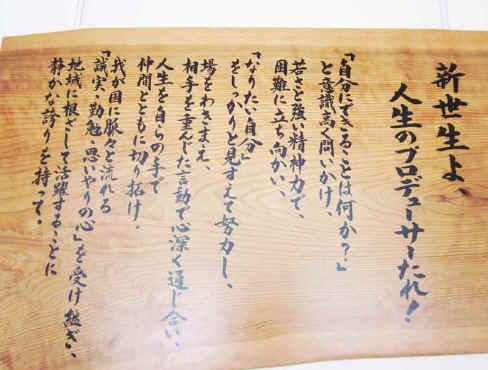 新世生よ、
人生のプロデューサーたれ！
「自分にできることは何か？」
と意識高く問いかけ、
若さと強い精神力で、
困難に立ち向かい、
「なりたい自分」
をしっかりと見すえて努力し、
場をわきまえ、
相手を重んじた言動で心深く通じ合い、
人生を自らの手で
仲間とともに切り拓け。
我が国に脈々と流れる
「誠実・勤勉・思いやりの心」を受け継ぎ、
地域に根ざして活躍することに
静かな誇りを持て。